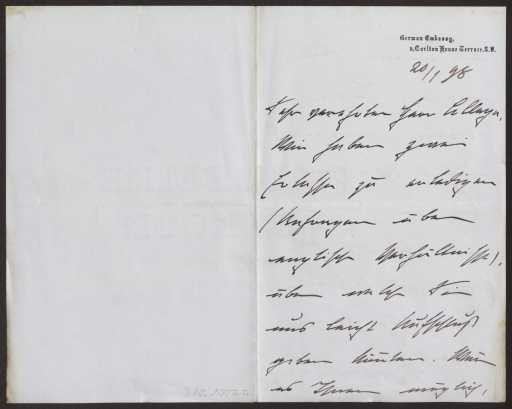 German Embassy,
9, Carlton House Terrace, S.W.
20/1 98
Sehr verehrter Herr
Wir haben zwei
Erlasse zu erledigen
(Anfragen über
englische Verhältnisse),
über welche Sie
uns leicht Aufschluß
geben könnten. Wäre
es Ihnen möglich,